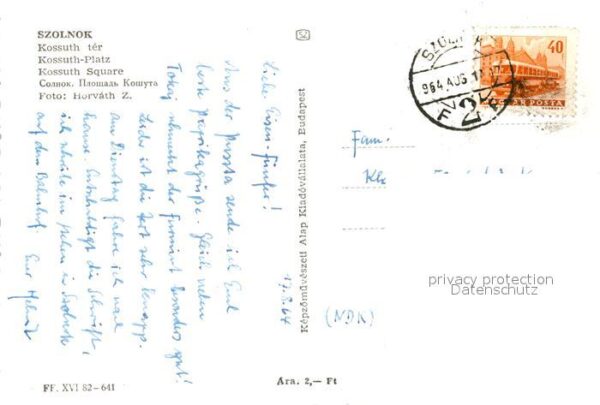 SZOLNOK
Kossuth tér
Kossuth-Platz
Kossuth Square
Солнок. Площадь Кошута
Foto: Horváth Z.
17.8.64
Liebe Eisen-Fünfer!
Aus der Puszta sende ich Euch
beste Paprikagrüße. Gleich neben
Tokaj schmeckt der Furmint besonders gut!
Leider ist die Zeit sehr knapp.
Am Dienstag fahre ich nach
Hause. Entschuldigt die Schrift,
ich schreibe im Stehen in Szolnok
auf dem Bahnhof. Euer
FF. XVI 82-641
Képzőművészeti Alap Kiadóvállalata, Budapest
Ara. 2,— Ft
SZOLNOK
964 AUG 17
2
40
MAGYAR POSTA
Fam.
(NDK)
privacy protection
Datenschutz